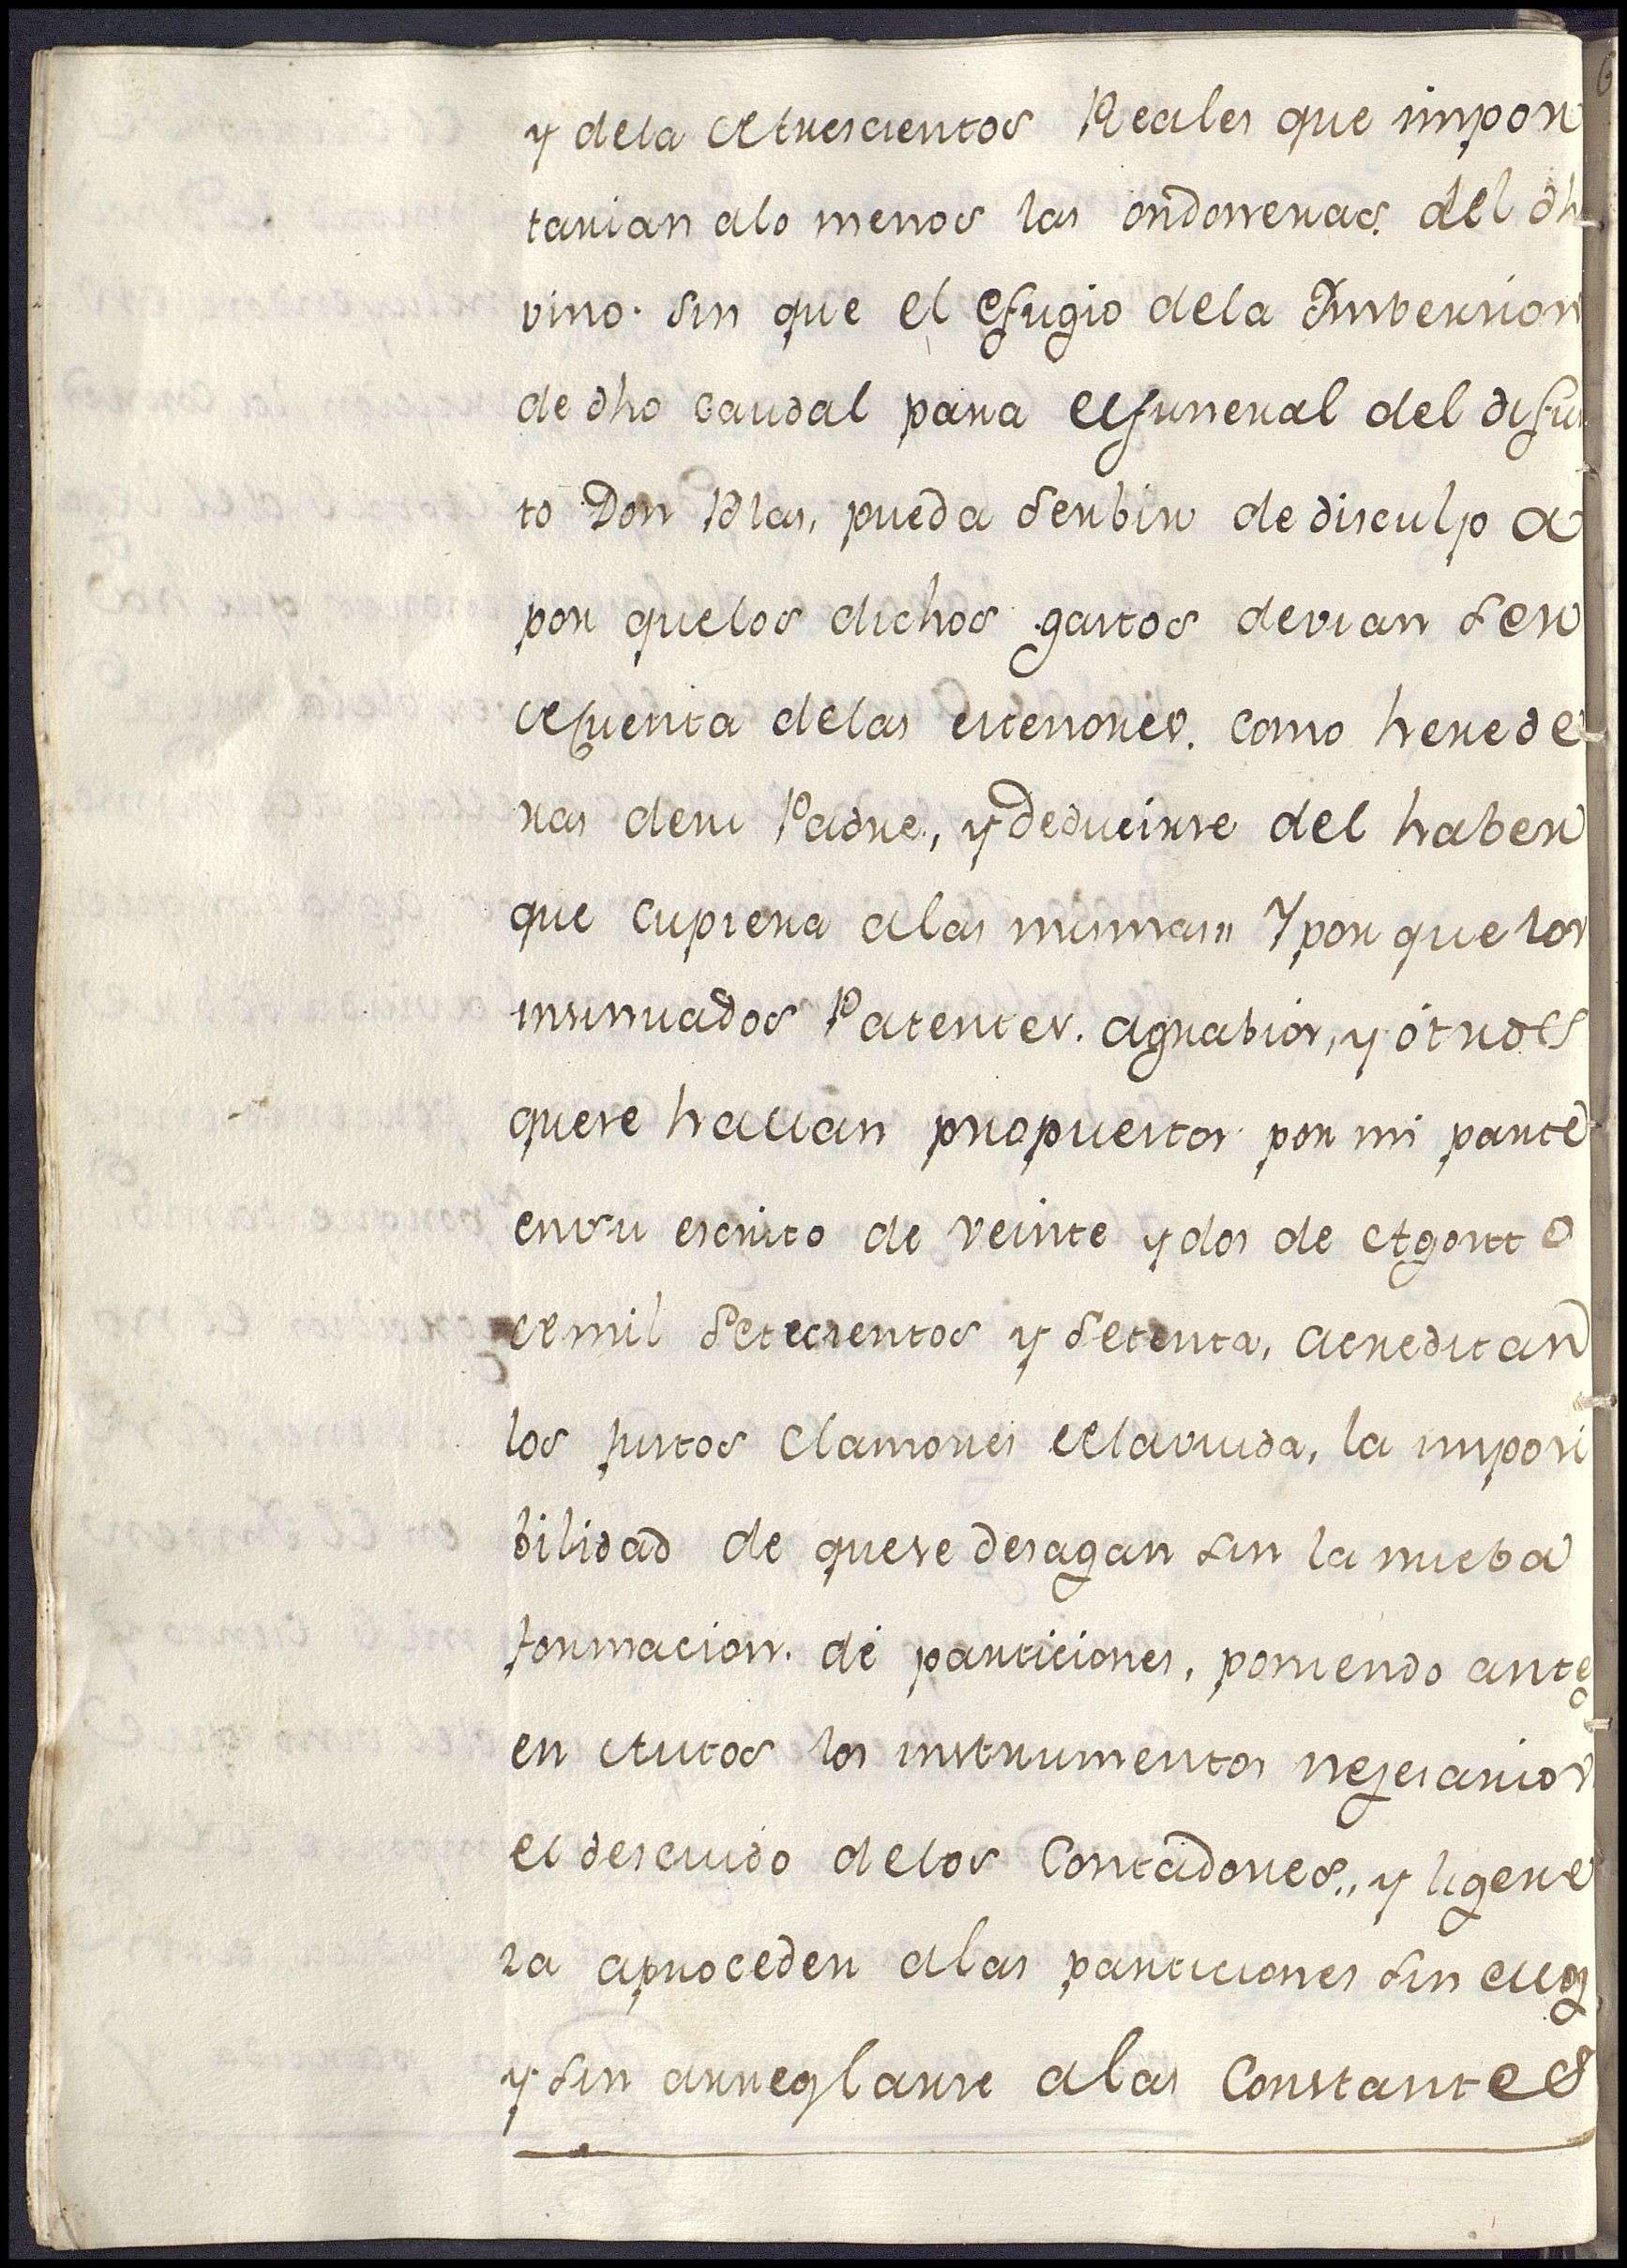 y dela de trescientos Reales que impor
tarian alo menos las ondorreras. del dh
vino. sin que el efugio dela Imbersion
de dho caudal para el funeral del difun
to Don Blas, pueda serbir de disculpa
por quelos dichos gastos devian ser
de quenta delas esteriores. como herede
ras desu Padre, y deducirse del haber
que cupiera alas mismas,, Y por que los
insinuados Patentes. agrabios, y otros
quese hallan propuestos por mi parte
ensu escrito de veinte y dos de Agostto
de mil setecientos y setenta, acreditan
los justos clamores de la viuda, la imposi
bilidad de quese desagan sin la nueba
formacion. de particiones, poniendo antes
en Autos los instrumentos nezesarios
el descuido delos Contadores,, y ligere
za aproceden alas particiones sin ellos
y sin arreglarse alas Constantes